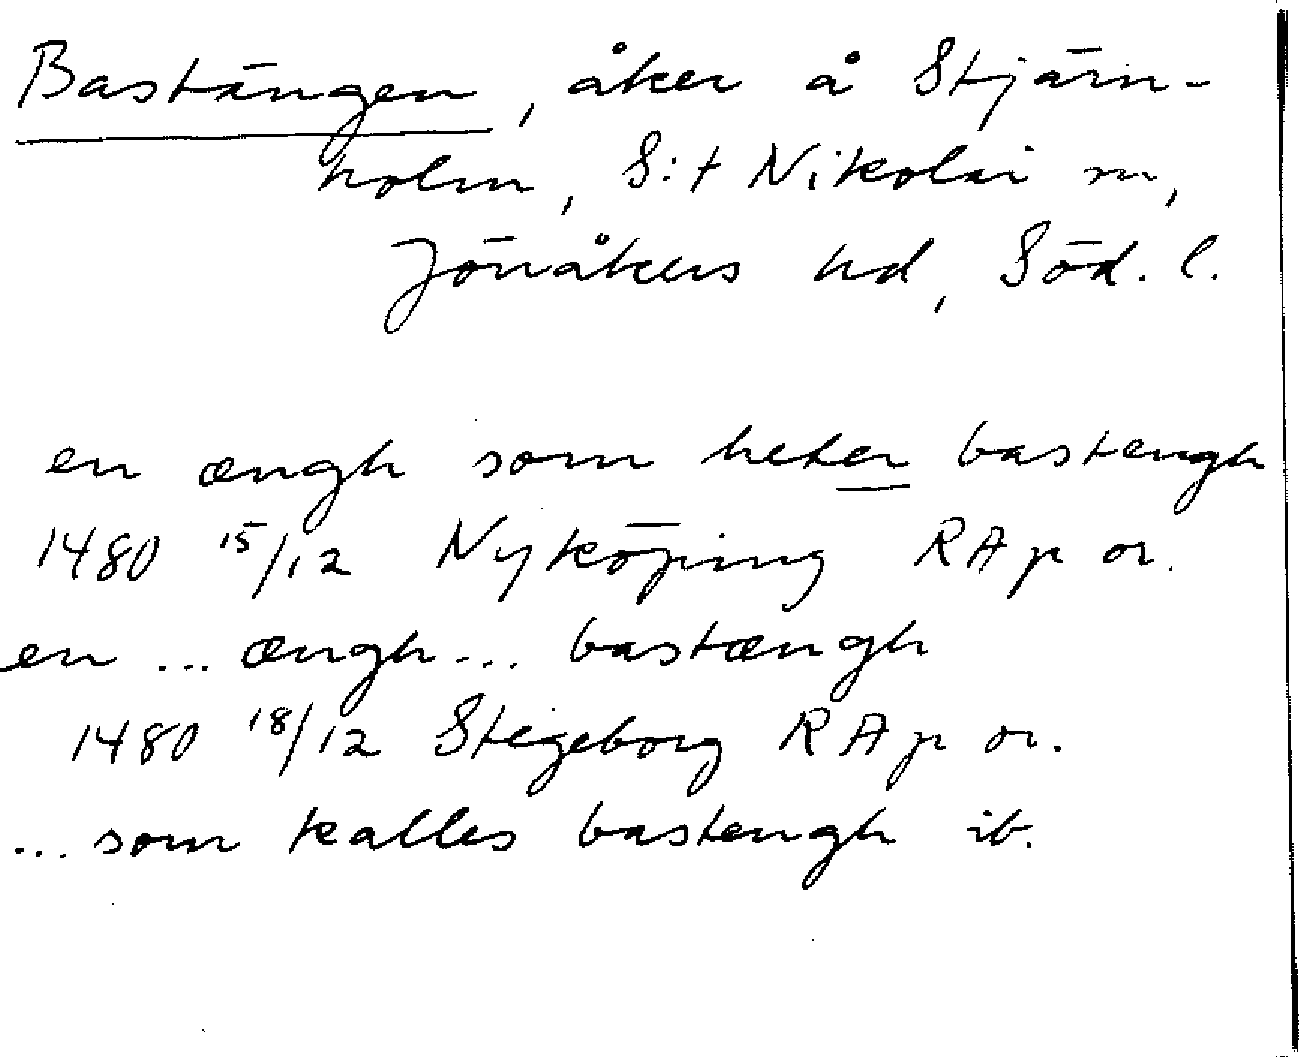 Bastängen, åker å Stjärn-
holm, S:t Nikolai sn,
Jönåkers hd, Söd. l.
en ængh som heter bastengh
1480 15/12 Nyköping RAp or.
en ... ængh ... bastængh
1480 18/12 Stegeborg RAp or.
... som kalles bastengh ib.